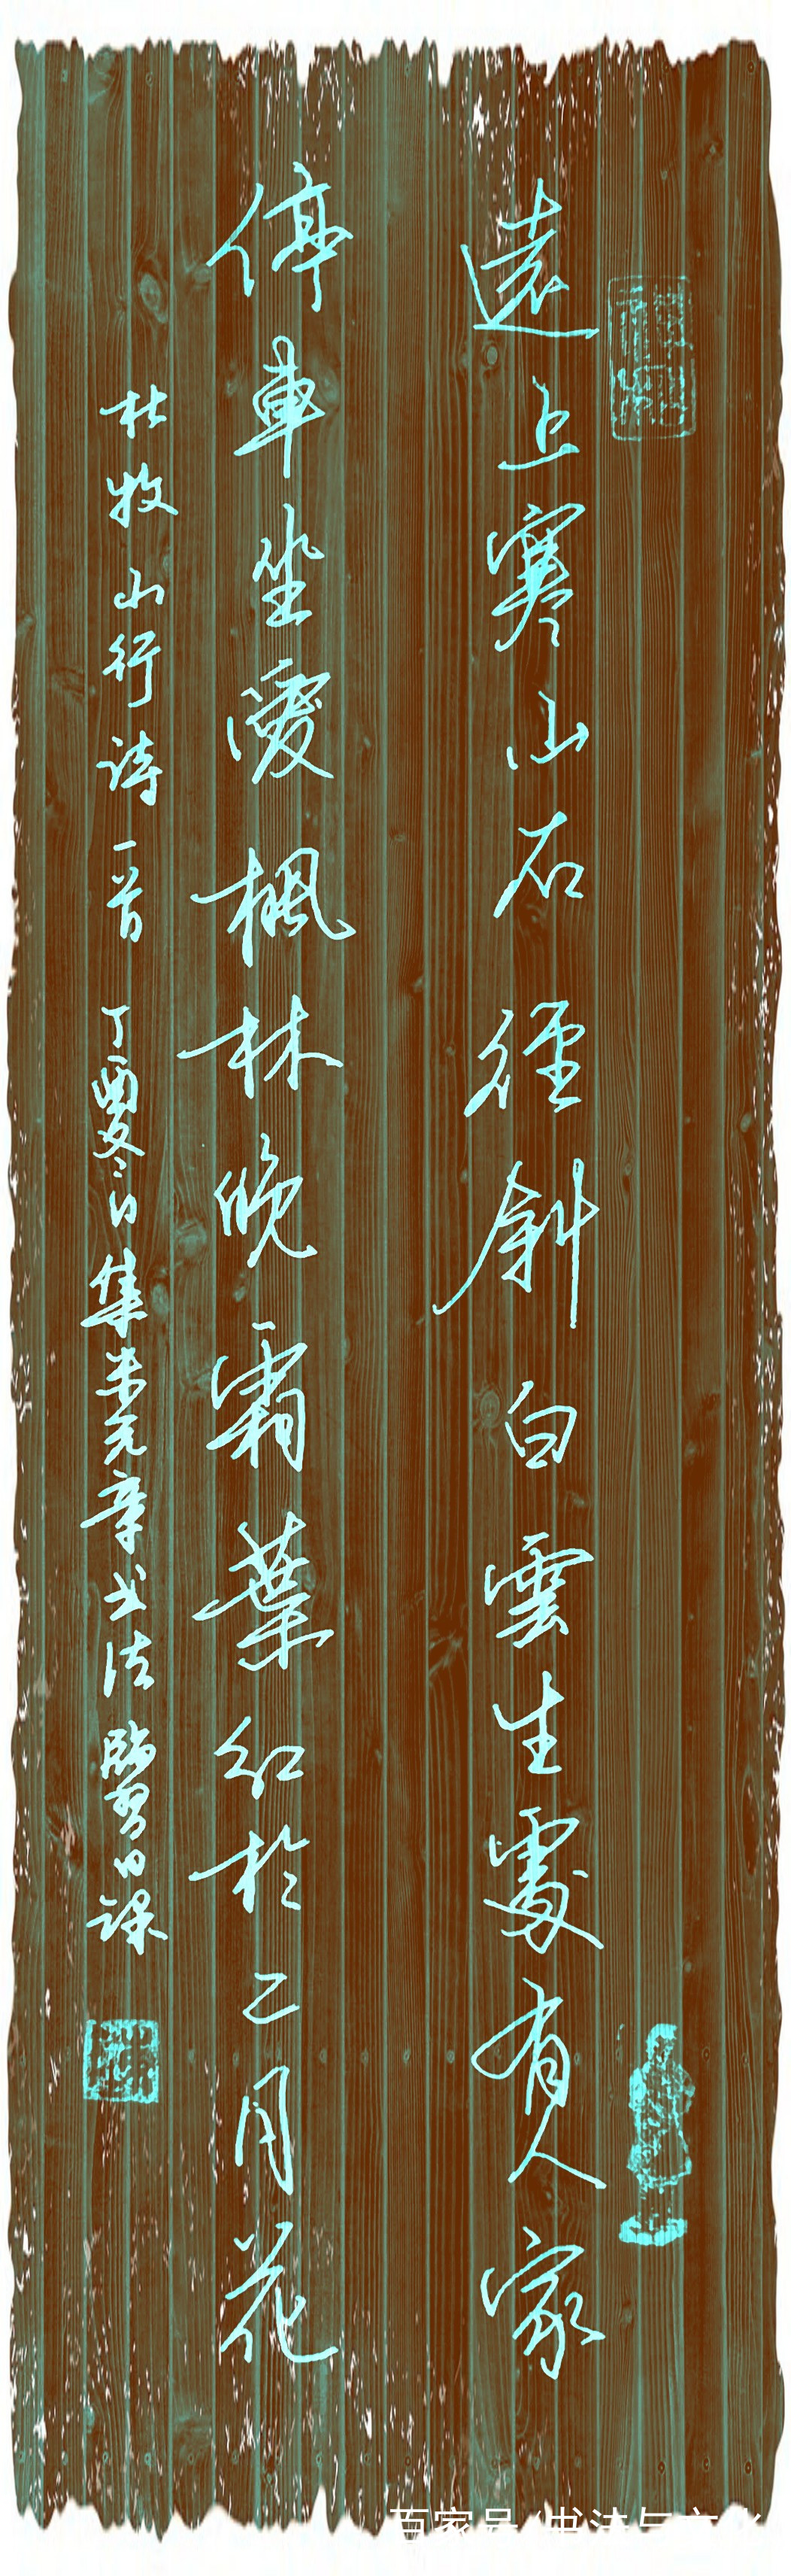 遠上寒山石徑斜白雲生處有人家
停車坐愛楓林晚霜葉紅於二月花
杜牧山行詩一首 丁酉冬日集米元章书法臨習日課
百家号/书法与文化